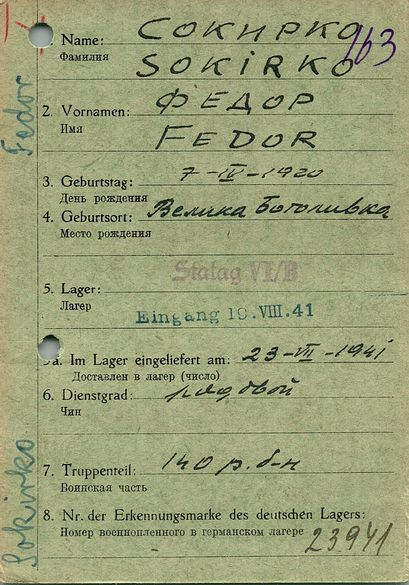 1. Name: СОКИРКО 163
Фамилия SOKIRKO
2. Vornamen: ФЕДОР
Имя FEDOR
3. Geburtstag: 7-IV-1920
День рождения
4. Geburtsort: Велика
Место рождения
Stalag VI/B
5. Lager:
Лагер
Eingang 19.VIII.41
5a. Im Lager eingeliefert am: 23-VII-1941
Доставлен в лагер (число)
6. Dienstgrad: рядовой
Чин
7. Truppenteil: 140 р. б-н
Воинская часть
8. Nr. der Erkennungsmarke des deutschen Lagers:
Номер военнопленного в германском лагере 23941
Fedor
Sokirko